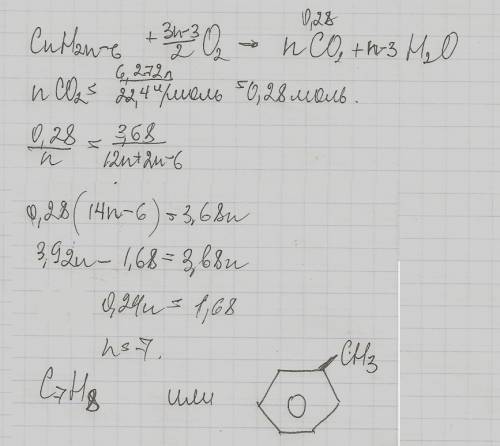 0,28
CnH2n-6 + 3n-3/2 O2 → nCO2 + n-3 H2O
nCO2 = 6,272л/22,4л/моль = 0,28моль.
0,28/n = 3,68/12n+2n-6
0,28(14n-6) = 3,68n
3,92n - 1,68 = 3,68n
0,24n = 1,68
n = 7.
CH3
C7H8 или